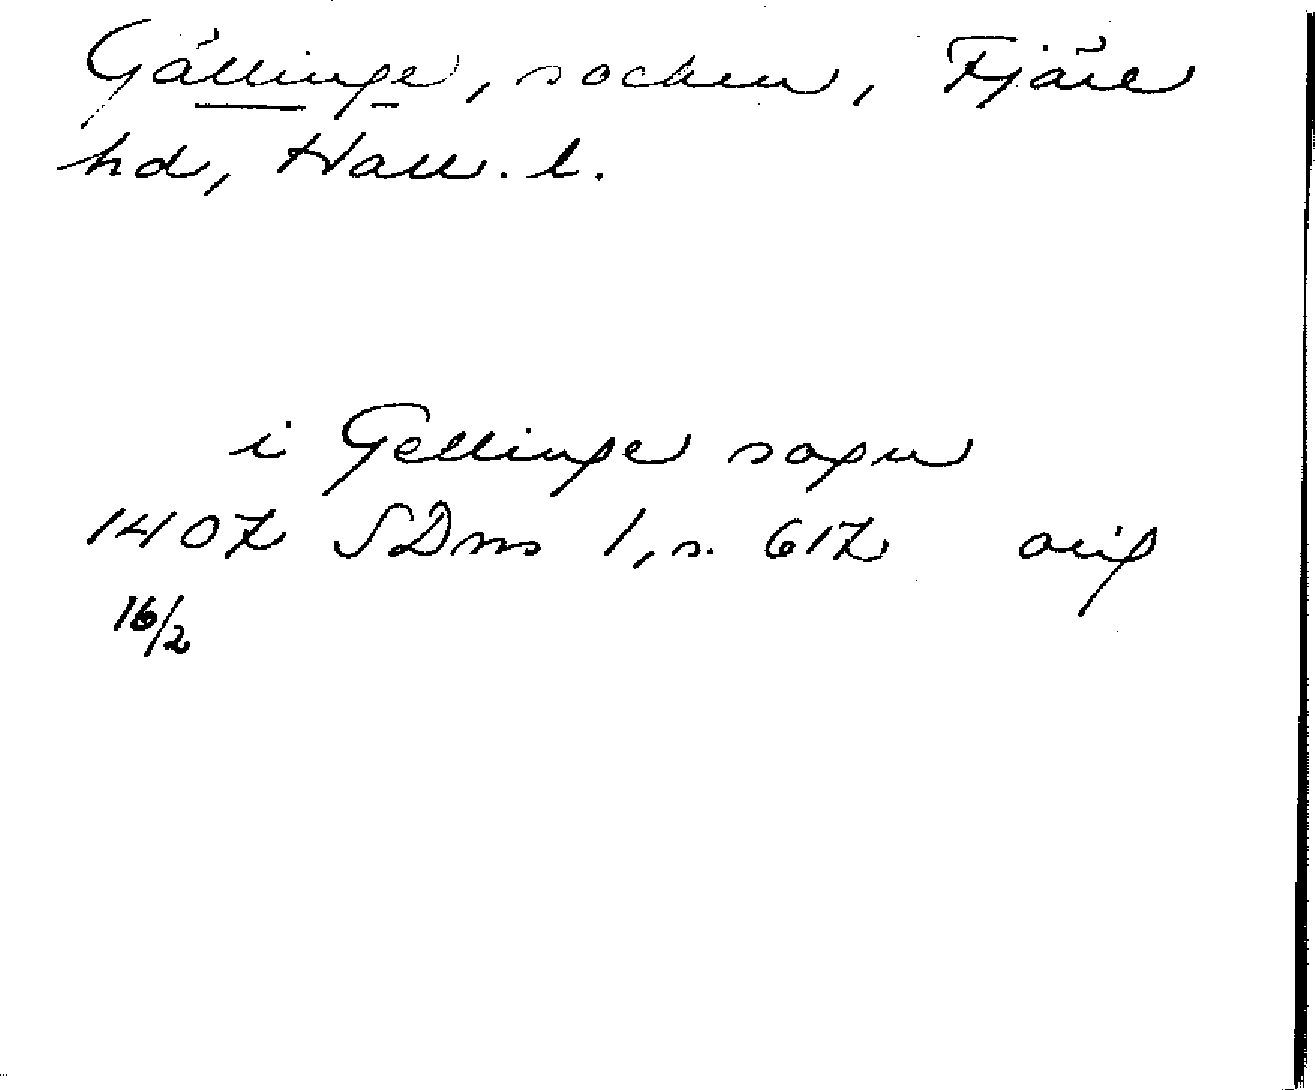 Gällinge, socken, Fjäre
hd, Hall. l.
i Gellinge sogn
1407 SDns 1, s. 617 orig
16/2